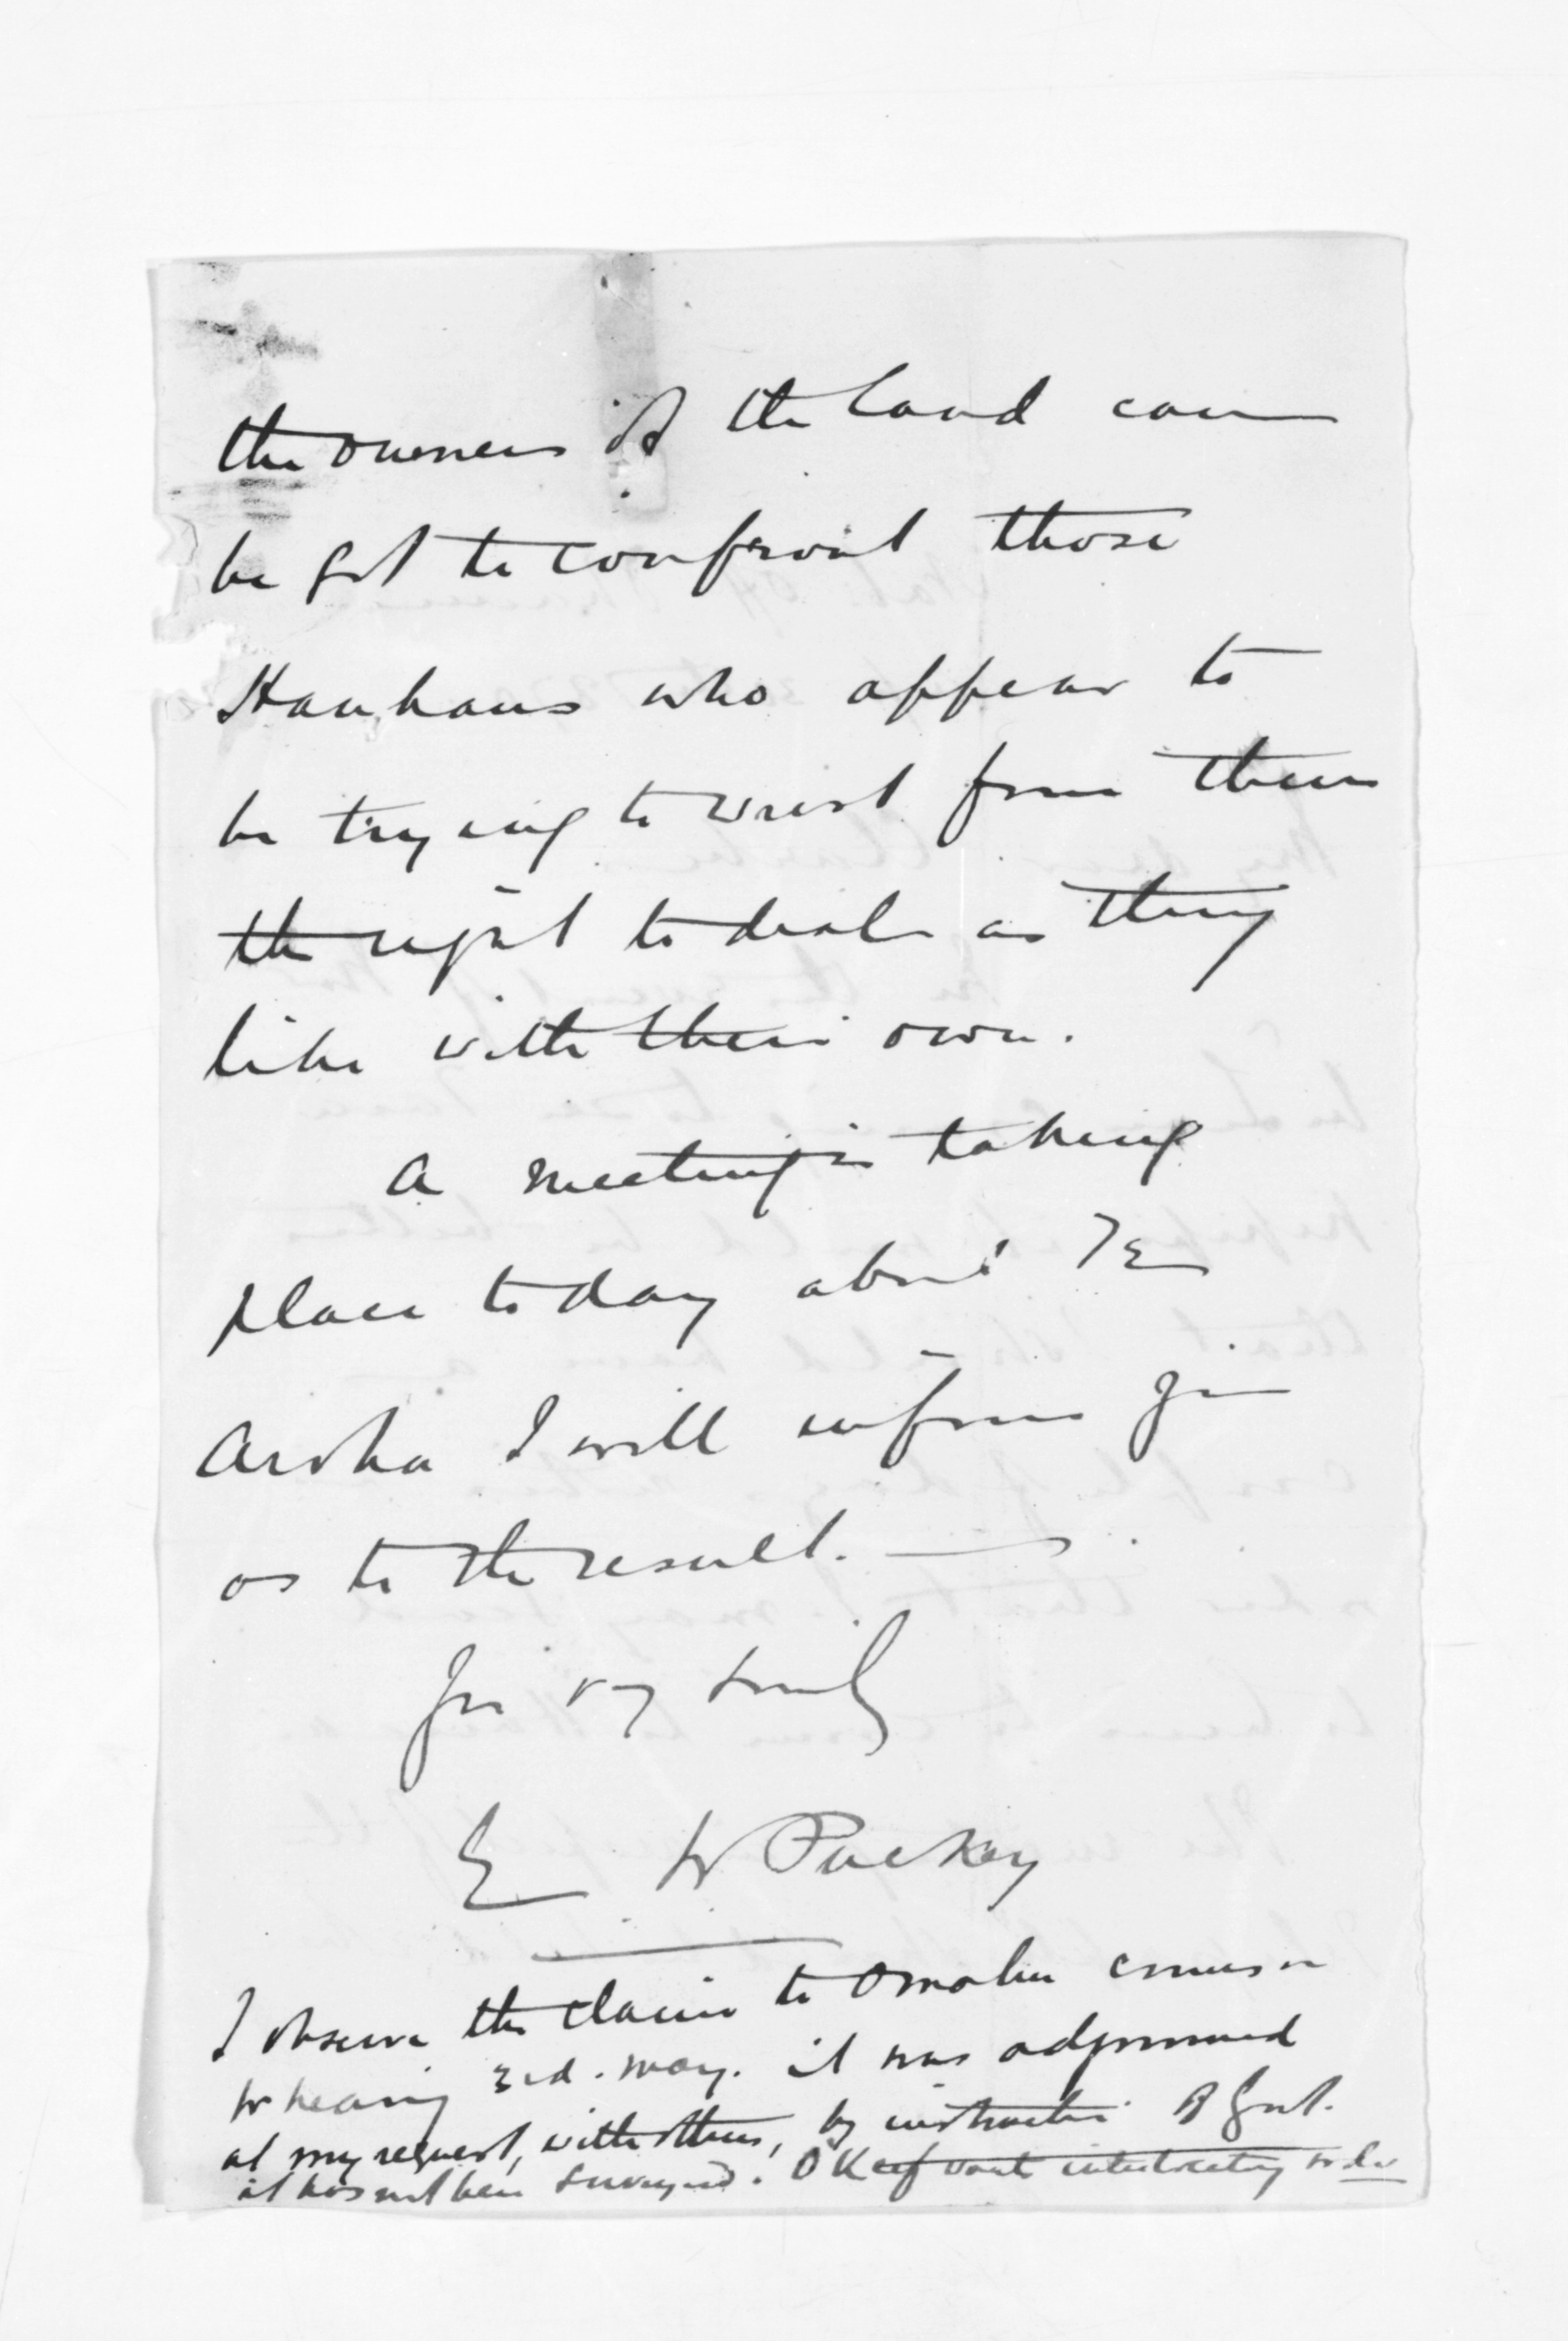 the owners of the land can
be got to confront those
Hauhaus who appear to
be trying to wrest from them
the right to deal as they
like with their own.
A meeting is taking
place to day about Te
Aroha I will inform you
as to the result.
Yrs vy truly
E W Puckey
I observe the claim to Omahu comes on
for hearing 3rd. May. it was adjourned
at my request, with others, by instruction of Govt.
it has not been surveyed. O'Keef wants interlocutory order